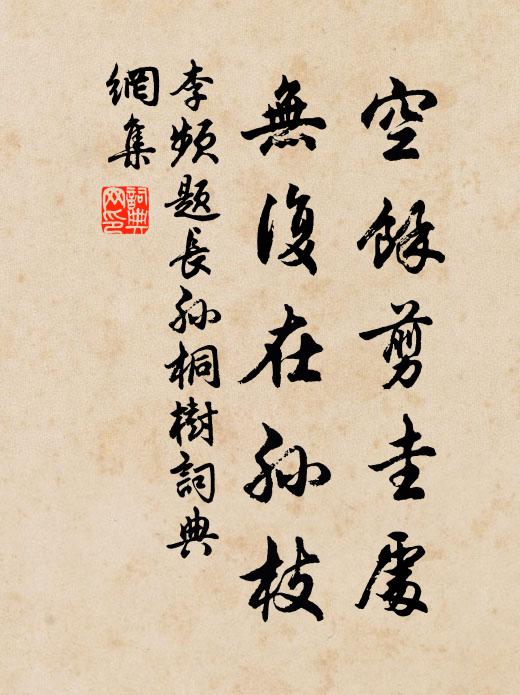 空餘剪圭處
無復在孫枝
李頻題長孫桐樹詞典
網集
詞典
网印